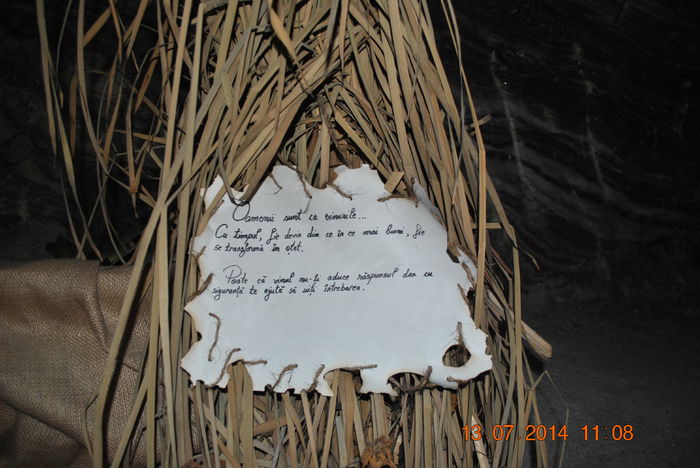 Oamenii sunt ca vinurile...
Cu timpul, fie devin din ce în ce mai buni, fie
se transformă în oțet.
Poate că vinul nu-ți aduce răspunsul dar cu
siguranță te ajută să uiți întrebarea.
13.07.2014 11:08